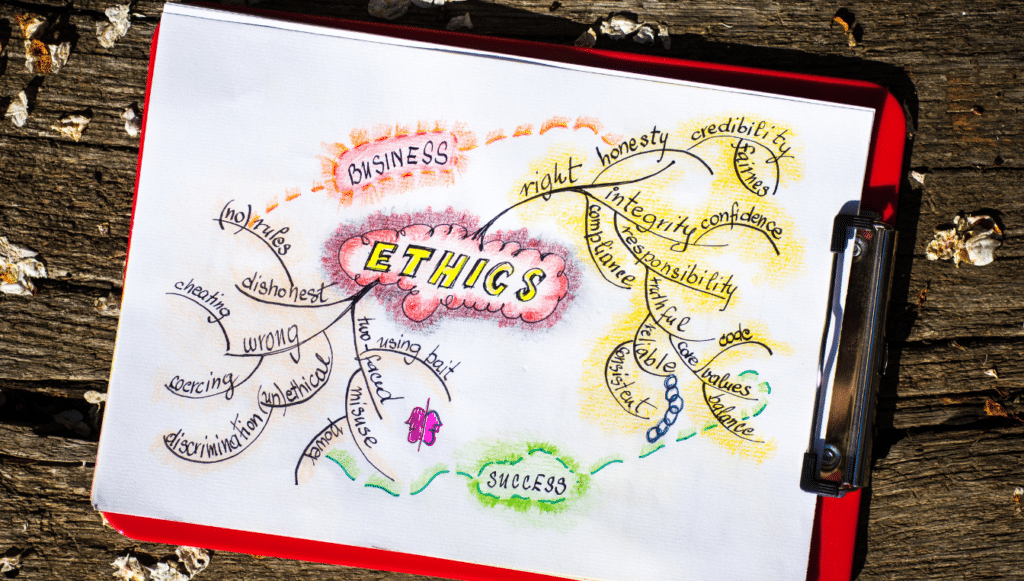 BUSINESS
ETHICS
right
honesty
credibility
fairnes
integrity
confidence
compliance
responsibility
truthful
reliable
consistent
core
code
values
balance
(no) rules
dishonest
wrong
cheating
coercing
(un)ethical
discrimination
two-faced
using bait
misuse
power
SUCCESS